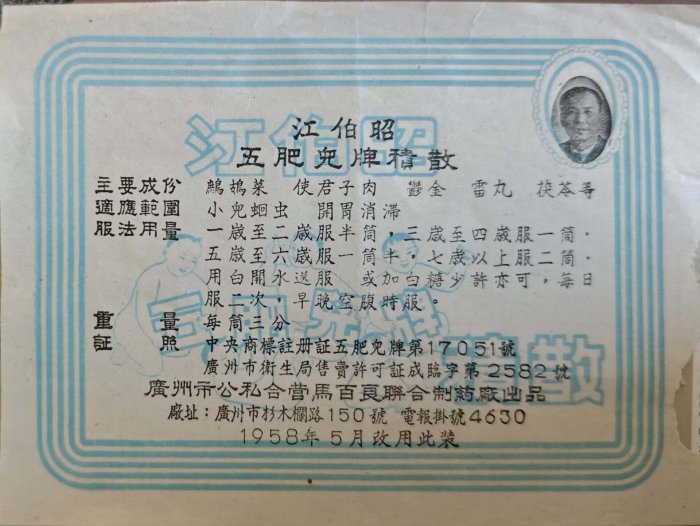 江伯昭
五肥兒牌積散
主要成份 鷓鴣菜 使君子肉 鬱金 雷丸 茯苓等
適應範圍 小兒蛔虫 開胃消滯
服法用量 一歲至二歲服半筒，三歲至四歲服一筒·
五歲至六歲服一筒半，七歲以上服二筒·
用白開水送服 或加白糖少許亦可，每日
服二次，早晚空腹時服。
重量 每筒三分
証照 中央商標註册証五肥兒牌第17051號
廣州市衛生局售賣許可証成臨字第2582號
廣州市公私合營馬百良聯合制葯廠出品
廠址：廣州市杉木欄路150號 電報掛號4630
1958年5月改用此裝
江伯昭
五肥兒牌
積散